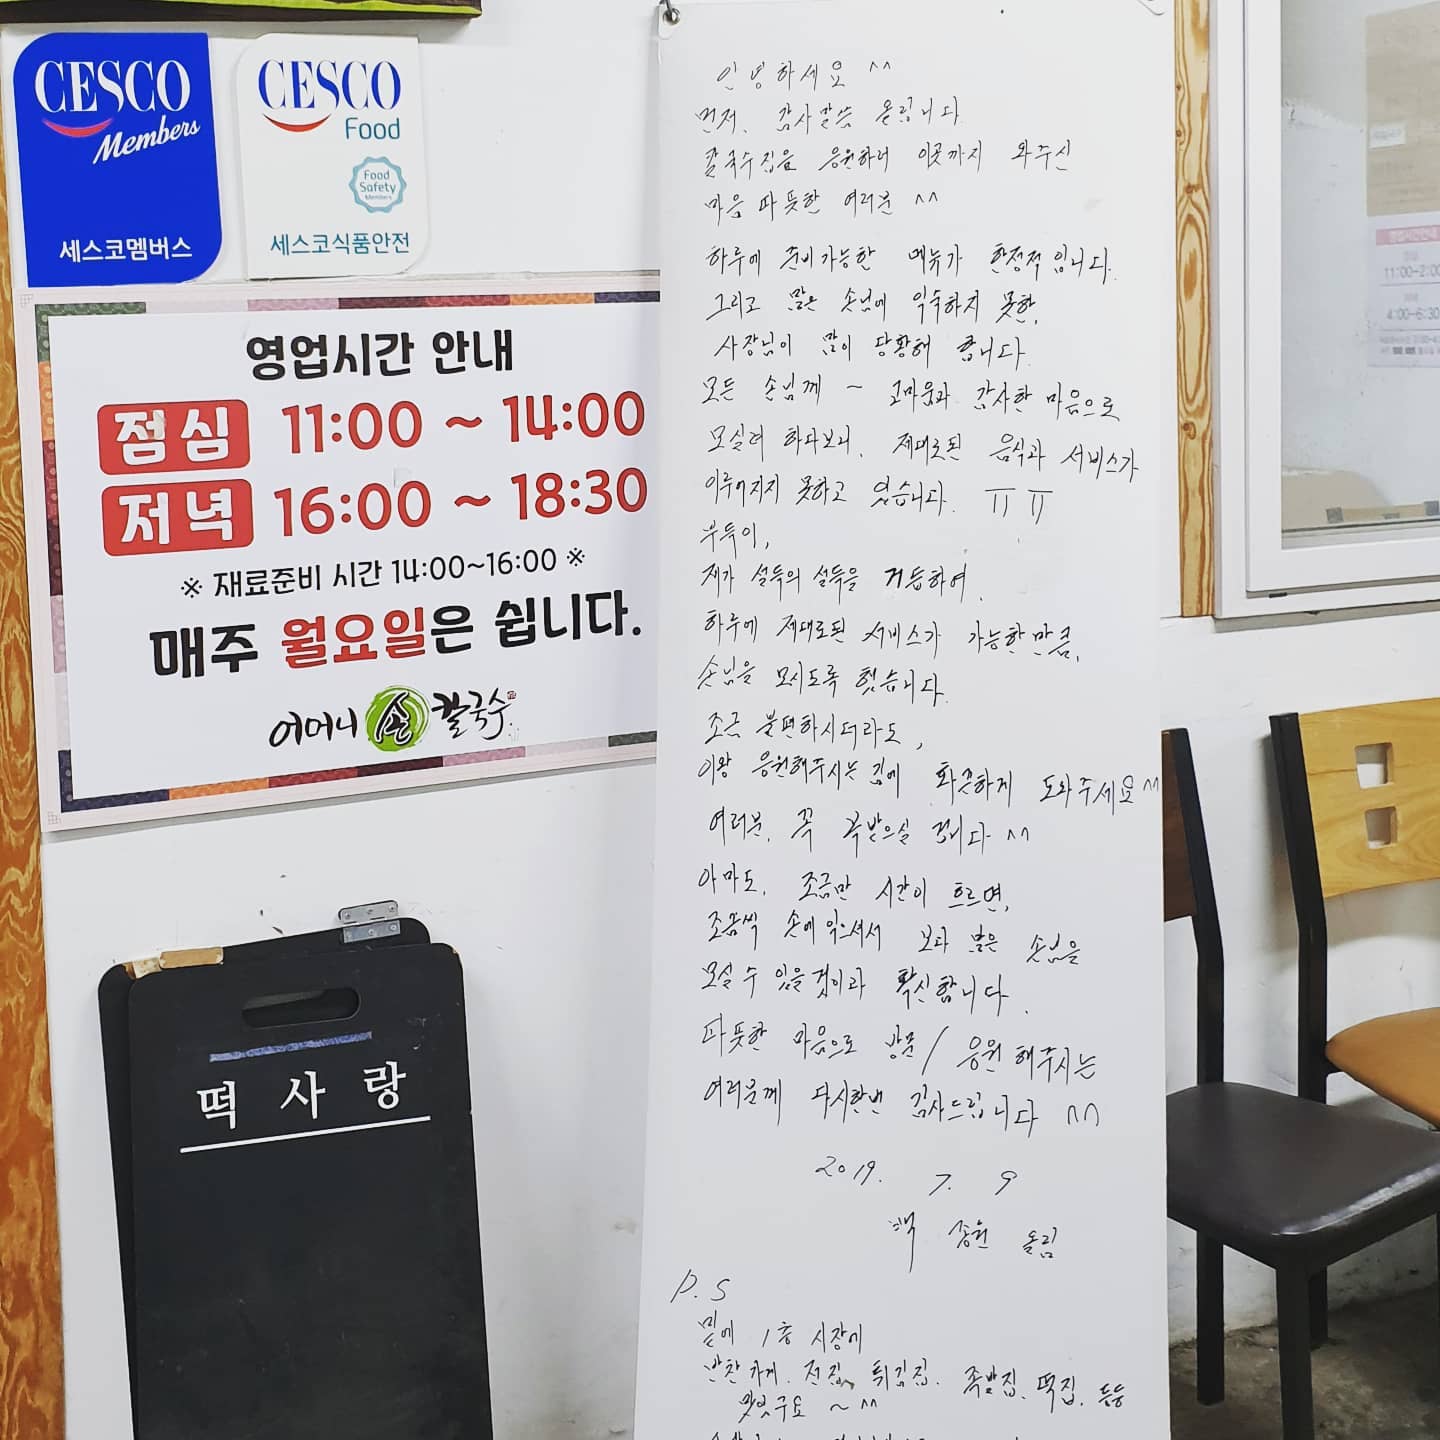 CESCO
Members
세스코멤버스
CESCO
Food
Food
Safety
Members
세스코식품안전
영업시간 안내
점심 11:00 ~ 14:00
저녁 16:00 ~ 18:30
※ 재료준비 시간 14:00~16:00 ※
매주 월요일은 쉽니다.
어머니 손 칼국수
떡 사 랑
안녕하세요 ^^
먼저, 감사말씀 올립니다.
칼국수집을 응원하러 이곳까지 와주신
마음 따뜻한 여러분 ^^
하루에 준비가능한 메뉴가 한정적입니다.
그리고 많은 손님에 익숙하지 못한,
사장님이 많이 당황해 합니다.
모든 손님께 ~ 고마움과 감사한 마음으로
모실려 하다보니, 제대로된 음식과 서비스가
이루어지지 못하고 있습니다. ㅠㅠ
부득이,
제가 설득의 설득을 거듭하여,
하루에 제대로된 서비스가 가능한만큼,
손님을 모시도록 했습니다.
조금 불편하시더라도,
이왕 응원해주시는김에 화끈하게 도와주세요^^
여러분, 꼭 복받으실 겁니다 ^^
아마도, 조금만 시간이 흐르면,
조금씩 손에 익으셔서 보다 많은 손님을
모실 수 있을것이라 확신합니다.
따뜻한 마음으로 방문/응원해주시는
여러분께 다시한번 감사드립니다 ^^
2019. 7. 9
백종원 올림
P.S
밑에 1층 시장에
반찬가게, 전집, 튀김집, 족발집, 떡집, 등등
맛있구요 ~ ^^
11:00~2:00
4:00~6:30